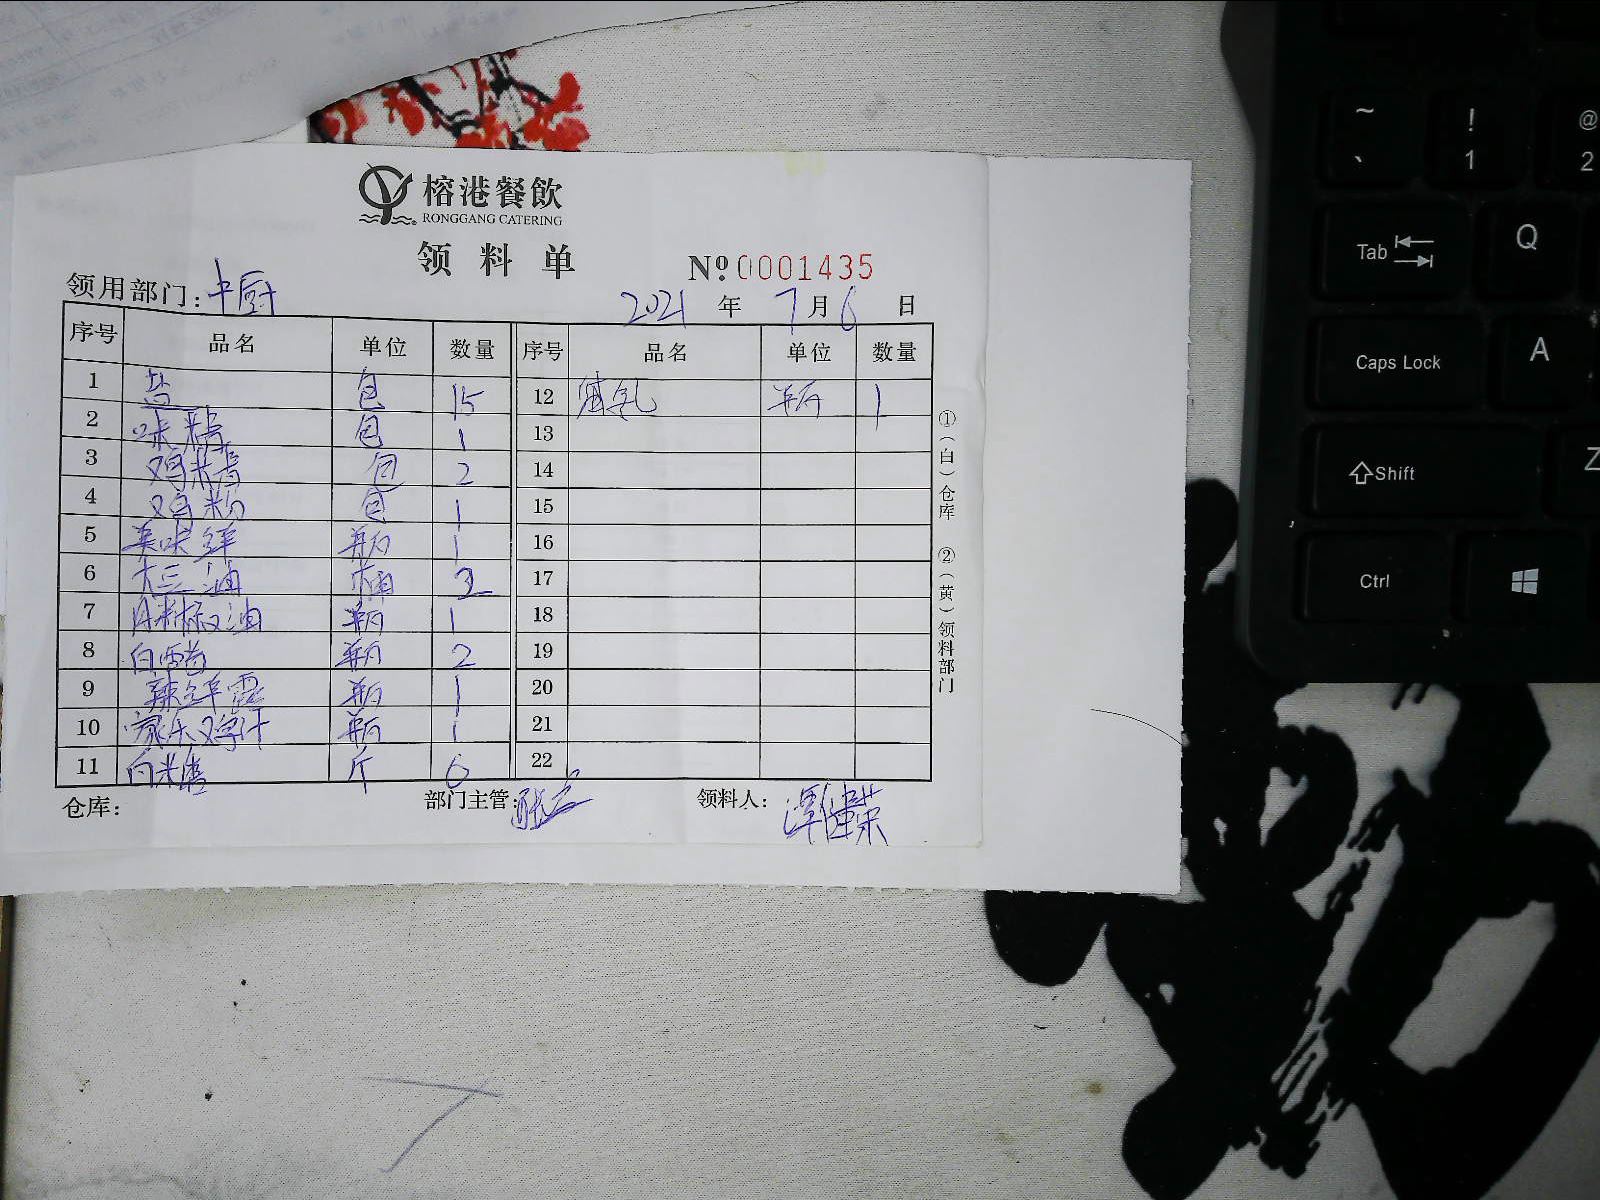 榕港餐飲
RONGGANG CATERING
领料单
№0001435
领用部门：中厨
2021年7月6日
序号 品名 单位 数量 序号 品名 单位 数量
1 盐 包 15 12 腐乳 瓶 1
2 味精 包 1 13
3 鸡精 包 2 14
4 鸡粉 包 1 15
5 美味鲜 瓶 1 16
6 大豆油 桶 2 17
7 瓶 1 18
8 白 瓶 2 19
9 辣鲜露 瓶 1 20
10 家乐鸡汁 瓶 1 21
11 白米醋 斤 6 22
仓库：
部门主管：
领料人：
①（白）仓库 ②（黄）领料部门
~
、
!
1
@
2
Tab
Q
Caps Lock
A
Shift
Z
Ctrl